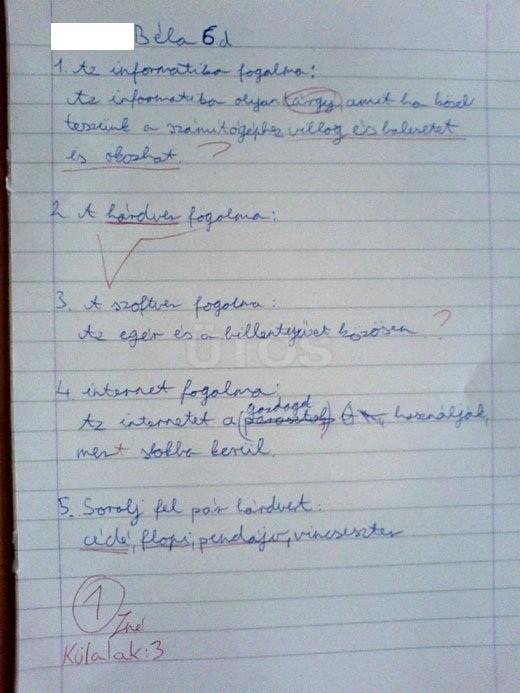 Béla 6d
1. Az informatika fogalma:
Az informatika olyan tárgy, amit ha közel
teszünk a számítógéphez villog és balesetet
is okozhat. ?
2. A hárdver fogalma:
3. A szoftver fogalma:
Az egér és a billentyűzet közösen ?
ÜTŐS
4. internet fogalma:
Az internetet a gazdagd használják,
mert sokba kerül.
5. Sorolj fel pár hárdvert:
cédé, flopi, pendájv, vincseszter
1
Külalak: 3